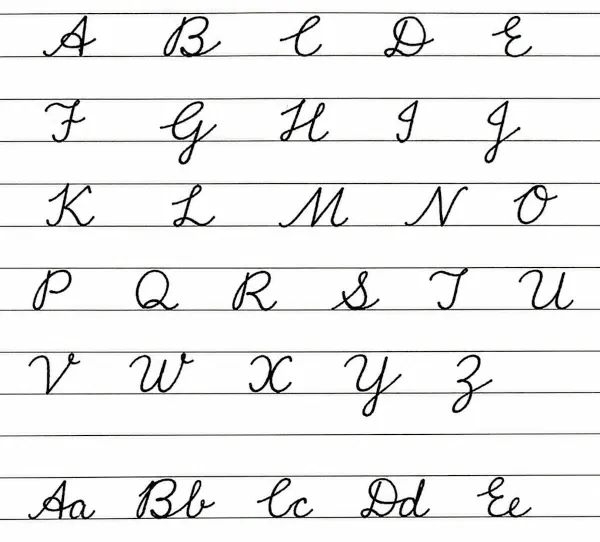 A B C D E
F G H I J
K L M N O
P Q R S T U
V W X Y Z
Aa Bb Cc Dd Ee